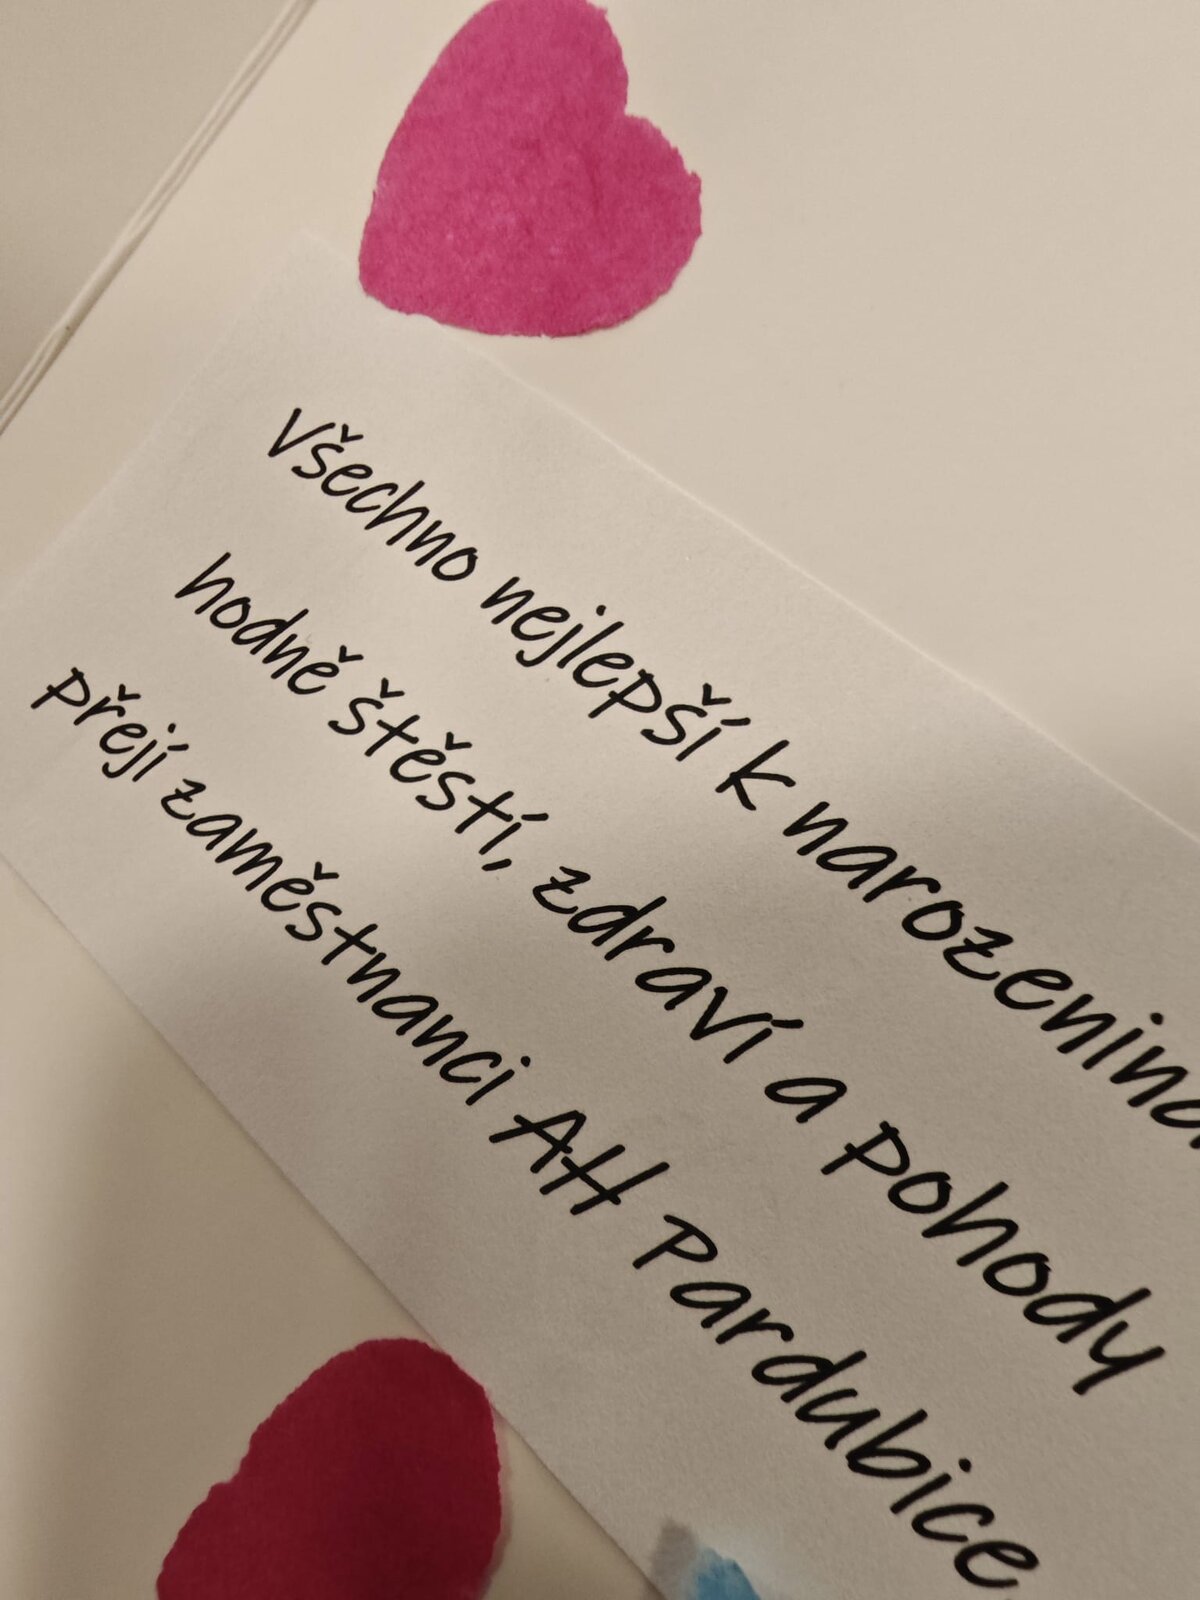 Všechno nejlepší k
hodně štěstí, zdraví a pohody
přejí zaměstnanci AH Pardubice